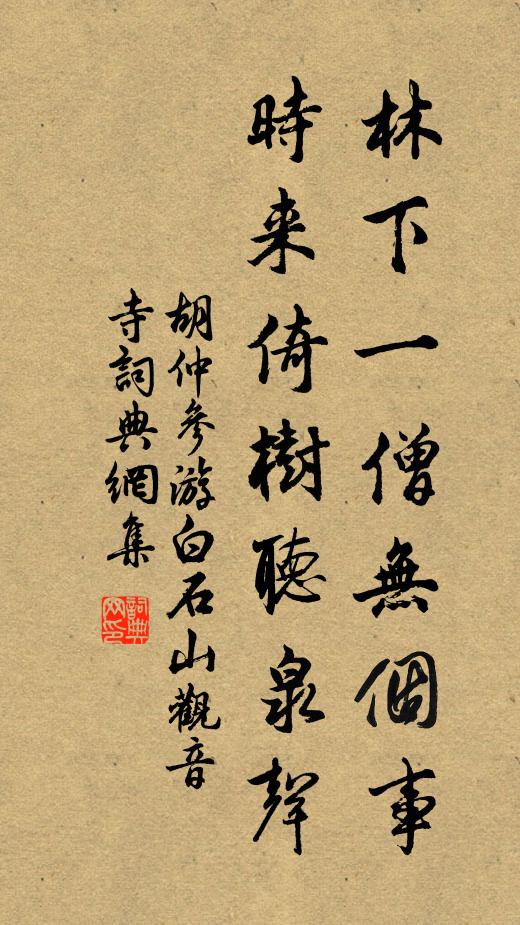 林下一僧無個事
時来倚樹聽泉聲
胡仲參游白石山觀音
寺詞典網集
詞典
网印